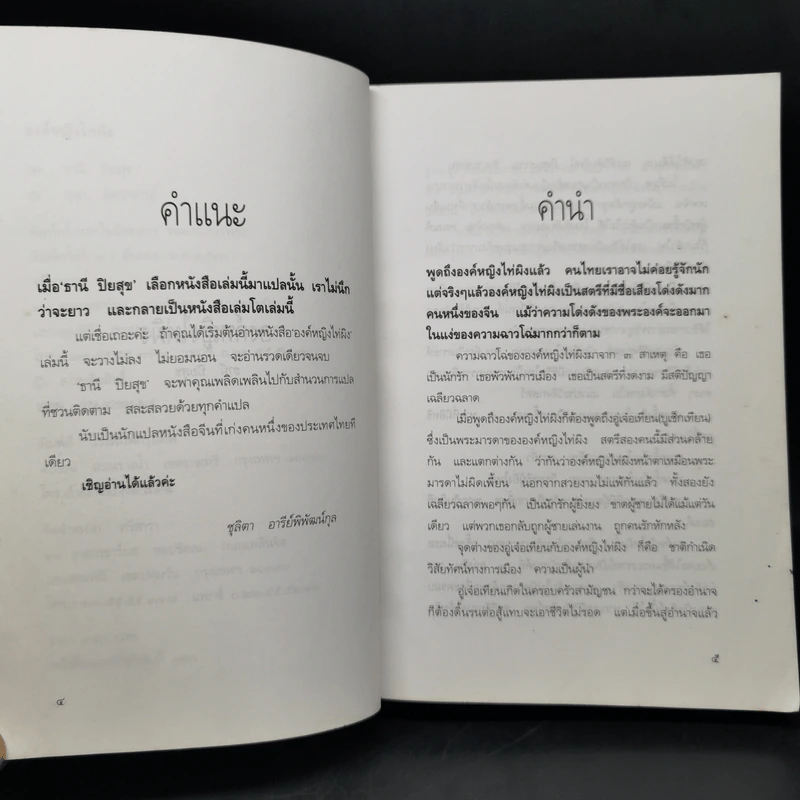 คำแนะ
เมื่อ‘ธานี ปิยสุข’ เลือกหนังสือเล่มนี้มาแปลนั้น เราไม่นึก
ว่าจะยาว และกลายเป็นหนังสือเล่มโตเล่มนี้
แต่เชื่อเถอะค่ะ ถ้าคุณได้เริ่มต้นอ่านหนังสือ‘องค์หญิงไท่ผิง’
เล่มนี้ จะวางไม่ลง ไม่ยอมนอน จะอ่านรวดเดียวจนจบ
‘ธานี ปิยสุข’ จะพาคุณเพลิดเพลินไปกับสำนวนการแปล
ที่ชวนติดตาม สละสลวยด้วยทุกคำแปล
นับเป็นนักแปลหนังสือจีนที่เก่งคนหนึ่งของประเทศไทยที
เดียว
เชิญอ่านได้แล้วค่ะ
ชุลิตา อารีย์พิพัฒน์กุล
๔
คำนำ
พูดถึงองค์หญิงไท่ผิงแล้ว คนไทยเราอาจไม่ค่อยรู้จักนัก
แต่จริงๆแล้วองค์หญิงไท่ผิงเป็นสตรีที่มีชื่อเสียงโด่งดังมาก
คนหนึ่งของจีน แม้ว่าความโด่งดังของพระองค์จะออกมา
ในแง่ของความฉาวโฉ่มากกว่าก็ตาม
ความฉาวโฉ่ขององค์หญิงไท่ผิงมาจาก ๓ สาเหตุ คือ เธอ
เป็นนักรัก เธอพัวพันการเมือง เธอเป็นสตรีที่งดงาม มีสติปัญญา
เฉลียวฉลาด
เมื่อพูดถึงองค์หญิงไท่ผิงก็ต้องพูดถึงอู่เจ๋อเทียน(บูเช็กเทียน)
ซึ่งเป็นพระมารดาขององค์หญิงไท่ผิง สตรีสองคนนี้มีส่วนคล้าย
กัน และแตกต่างกัน ว่ากันว่าองค์หญิงไท่ผิงหน้าตาเหมือนพระ
มารดาไม่ผิดเพี้ยน นอกจากสวยงามไม่แพ้กันแล้ว ทั้งสองยัง
เฉลียวฉลาดพอๆกัน เป็นนักรักผู้ยิ่งยง ขาดผู้ชายไม่ได้แม้แต่วัน
เดียว แต่พวกเธอกลับถูกผู้ชายเล่นงาน ถูกคนรักหักหลัง
จุดต่างของอู่เจ๋อเทียนกับองค์หญิงไท่ผิง ก็คือ ชาติกำเนิด
วิสัยทัศน์ทางการเมือง ความเป็นผู้นำ
อู่เจ๋อเทียนเกิดในครอบครัวสามัญชน กว่าจะได้ครองอำนาจ
ก็ต้องดิ้นรนต่อสู้แทบจะเอาชีวิตไม่รอด แต่เมื่อขึ้นสู่อำนาจแล้ว
๕